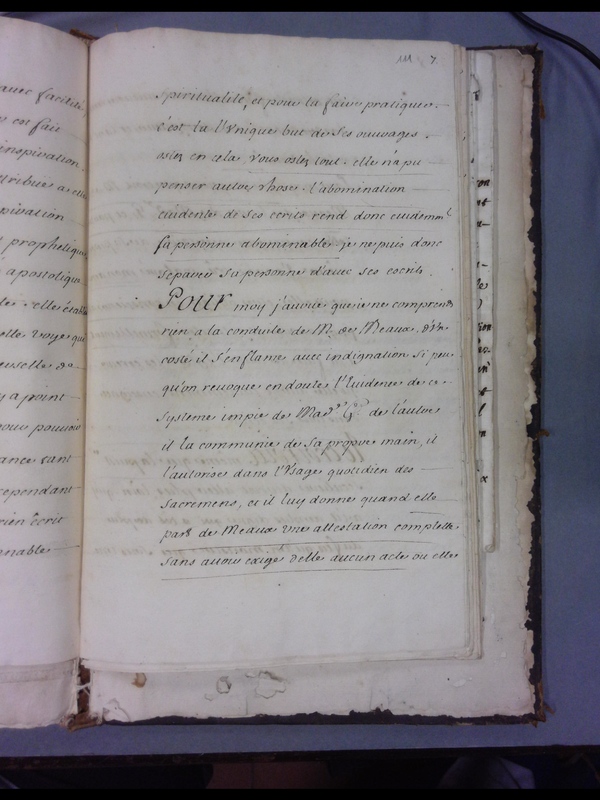 avec facilité
y est fait
inspiration
ttribue a elle
piration
t prophetique
apostolique
te elle établ
elle voye qui
euselle de
y a point
pour pouvoir
ance tant
cependant
rien écrit
nable
111 7
spiritualité, et pour la faire pratiquer.
c'est la l'Vnique but de ses ouvrages.
ostez en cela, vous ostez tout. elle n'a pu
penser autre chose. l'abomination
euidente de ses ecrits rend donc euidem.t
sa personne abominable. je ne puis donc
separer sa personne d'auec ses ecrits.
Pour moy j'auoüe que je ne comprends
rien a la conduite de M. de Meaux. d'Vn
costé il s'enflame auec indignation si peu
qu'on reuoque en doute l'Euidence de ce
systeme impie de Mad.e G. de l'autre
il la communie de sa propre main, il
l'autorise dans l'Vsage quotidien des
Sacremens, et il luy donne quand elle
part de Meaux vne attestation complette
sans auoir exigé d'elle aucun acte ou elle